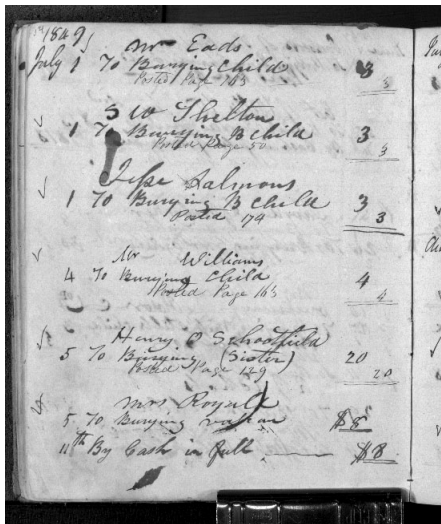 1849
Mr Eads
July 1 To Burying Child 3
Posted Page 163 3
S W Shelton
1 To Burying B Child 3
Posted Page 50 3
Jesse Salmons
1 To Burying B Child 3
Posted 174 3
Mr Williams
4 To Burying Child 4
Posted Page 163 4
Henry O Schoolfield
5 To Burying (Sister) 20
Posted Page 129 20
Mrs Royall
5 To Burying $8
11th By Cash in full $8